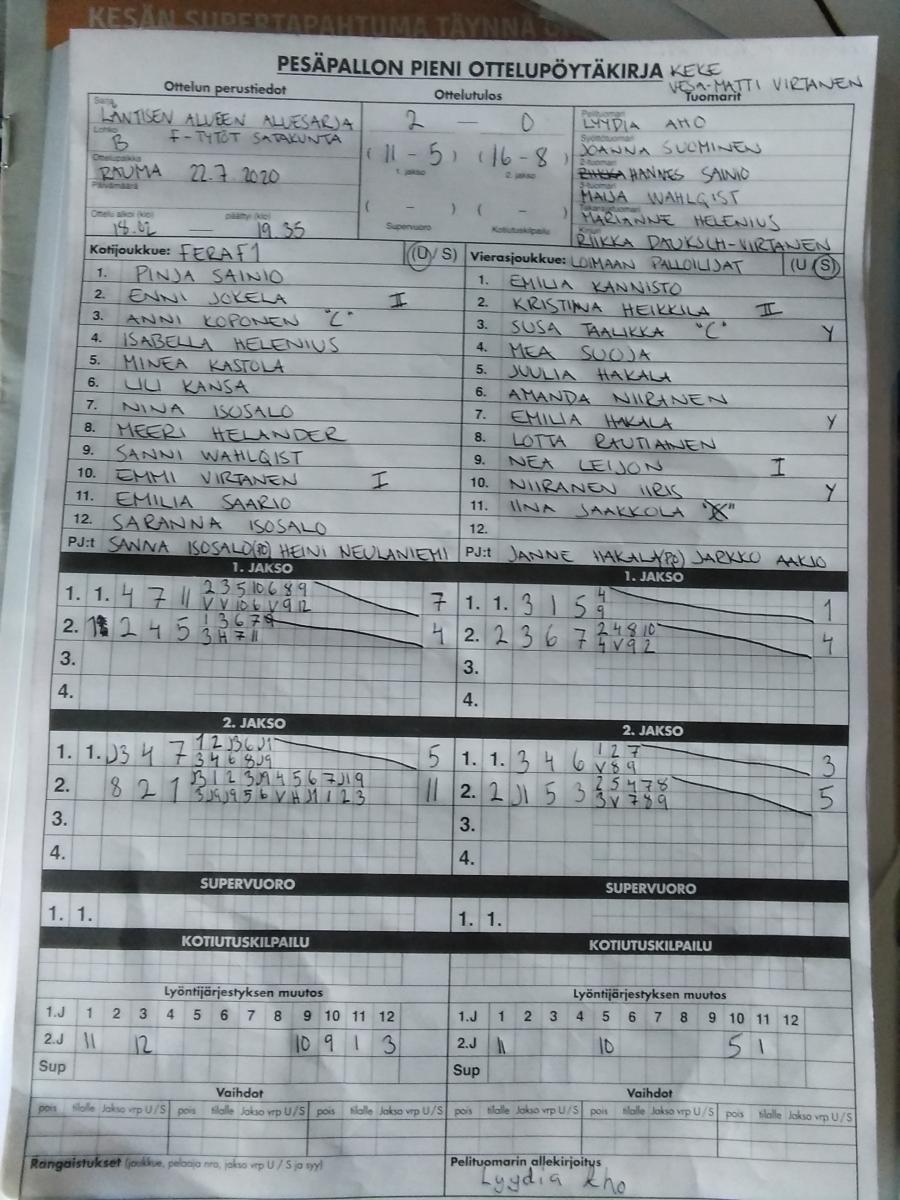 KESÄN SUPERTAPAHTUMA TÄYNNÄ
PESÄPALLON PIENI OTTELUPÖYTÄKIRJA KEKE
VESA-MATTI VIRTANEN
Ottelun perustiedot Ottelutulos Tuomarit
Sarja LÄNTISEN ALUEEN ALUESARJA
Lohko B F-TYTÖT SATAKUNTA
Ottelupaikka RAUMA 22.7.2020
Päivämäärä
Ottelu alkoi (klo) 18.02 — päättyi (klo) 19.35
2 — 0
(11 - 5) (16 - 8)
1. jakso 2. jakso
( - ) ( - )
Supervuoro Kotiutuskilpailu
Pelituomari LYYDIA AHO
Syöttötuomari JOANNA SUOMINEN
2-tuomari HANNES SAINIO
3-tuomari MAIJA WAHLQIST
Takarajatuomari MARIANNE HELENIUS
Kirjuri RIIKKA DAUKSCH-VIRTANEN
Kotijoukkue: FERA F1 (U/S)
1. PINJA SAINIO
2. ENNI JOKELA II
3. ANNI KOPONEN "C"
4. ISABELLA HELENIUS
5. MINEA KASTOLA
6. LILI KANSA
7. NINA ISOSALO
8. MEERI HELANDER
9. SANNI WAHLQIST
10. EMMI VIRTANEN I
11. EMILIA SAARIO
12. SARANNA ISOSALO
PJ:t SANNA ISOSALO(PJ) HEINI NEULANIEMI
Vierasjoukkue: LOIMAAN PALLOILIJAT (U/S)
1. EMILIA KANNISTO
2. KRISTIINA HEIKKILA II
3. SUSA TAALIKKA "C" Y
4. MEA SUOJA
5. JUULIA HAKALA
6. AMANDA NIIRANEN
7. EMILIA HAKALA Y
8. LOTTA RAUTIAINEN
9. NEA LEIJON I
10. NIIRANEN IIRIS Y
11. IINA JAAKKOLA
12.
PJ:t JANNE HAKALA(PJ) JARKKO AAKIO
1. JAKSO
1. 1. 4 7 11 2 3 5 10 6 8 9 7
V V 10 6 V 9 12
2. 2 4 5 1 3 6 7 9 4
3 H 7 11
3.
4.
1. JAKSO
1. 1. 3 1 5 4 1
9
2. 2 3 6 7 2 4 8 10 4
4 V 9 2
3.
4.
2. JAKSO
1. 1. J3 4 7 1 2 J3 6 J1 5
3 4 6 8 J9
2. 8 2 1 J3 1 2 3 J9 4 5 6 7 J1 9 11
3 J9 J9 5 6 V H J1 1 2 3
3.
4.
2. JAKSO
1. 1. 3 4 6 1 2 7 3
V 8 9
2. 2 J1 5 3 2 5 4 7 8 5
3 V 7 8 9
3.
4.
SUPERVUORO SUPERVUORO
1. 1. 1. 1.
KOTIUTUSKILPAILU KOTIUTUSKILPAILU
Lyöntijärjestyksen muutos Lyöntijärjestyksen muutos
1.J 1 2 3 4 5 6 7 8 9 10 11 12
2.J 11 12 10 9 1 3
Sup
1.J 1 2 3 4 5 6 7 8 9 10 11 12
2.J 11 10 5 1
Sup
Vaihdot Vaihdot
pois tilalle Jakso vrp U/S pois tilalle Jakso vrp U/S pois tilalle Jakso vrp U/S
pois tilalle Jakso vrp U/S pois tilalle Jakso vrp U/S pois tilalle Jakso vrp U/S
Rangaistukset (joukkue, pelaaja nro, jakso vrp U / S ja syy)
Pelituomarin allekirjoitus
Lyydia Aho